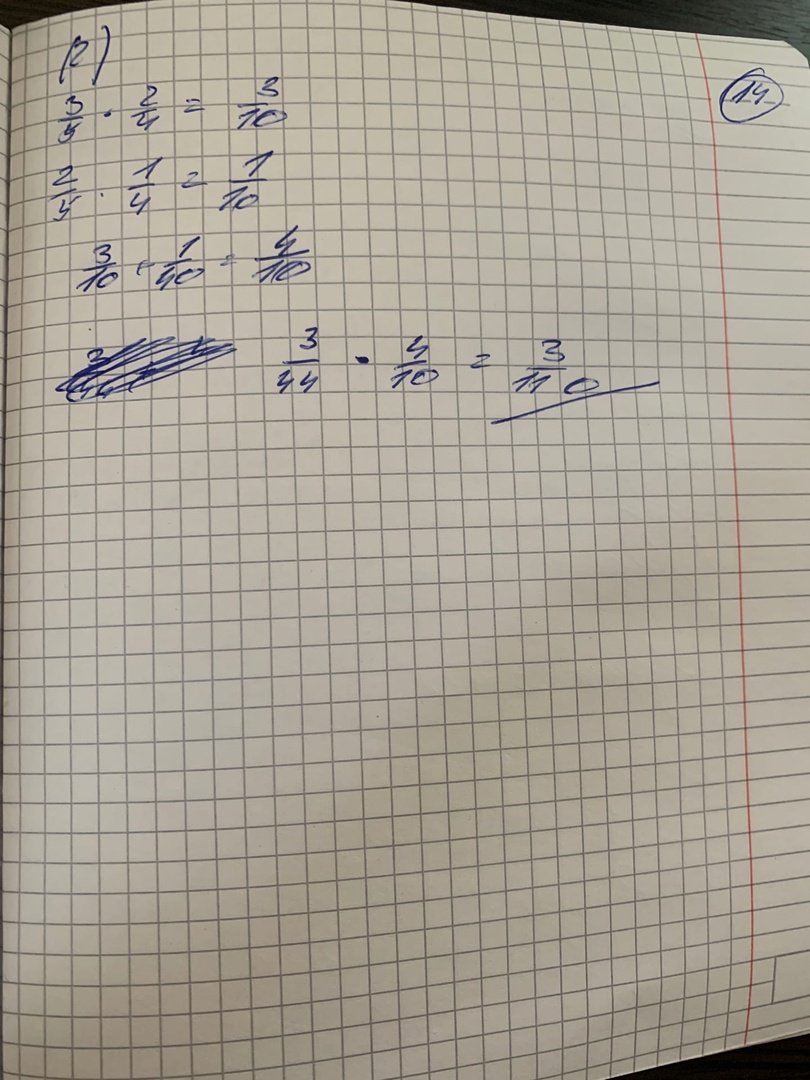 (R)
14.
3/5 · 2/4 = 3/10
2/5 · 1/4 = 1/10
3/10 + 1/40 = 4/10
3/44 · 4/10 = 3/110